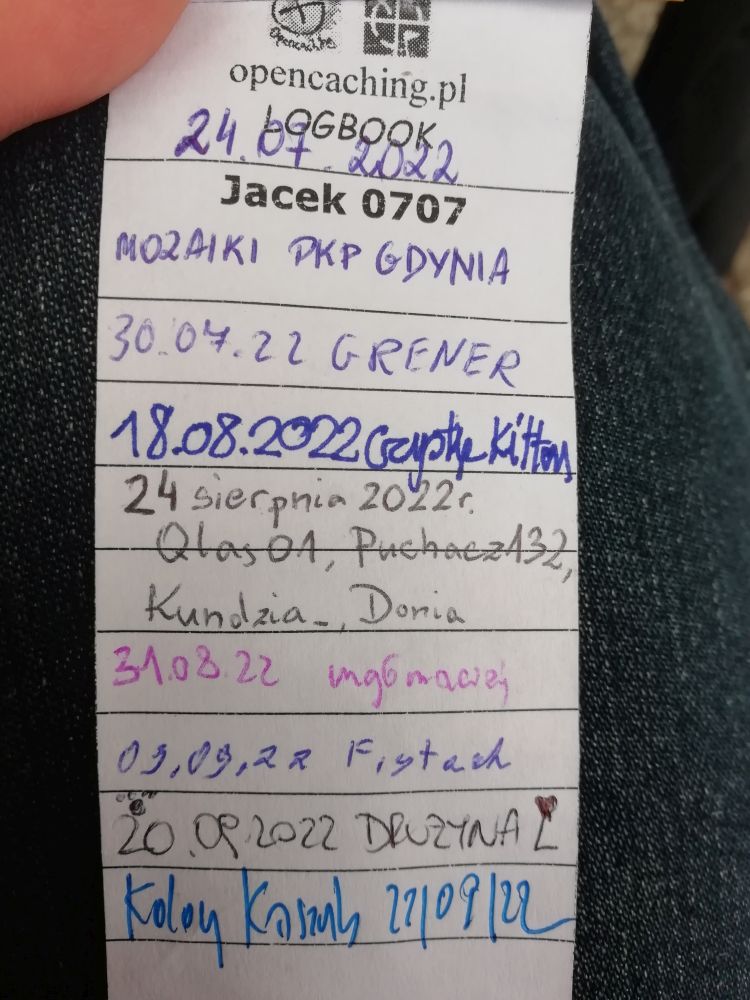 opencaching
opencaching.pl
LOGBOOK
24.07.2022
Jacek 0707
MOZAIKI PKP GDYNIA
30.07.22 GRENER
18.08.2022 Kitten
24 sierpnia 2022r.
Qlas01, Puchacz132,
Kundzia_, Donia
31.08.22
09,09,22 Fistach
20.09.2022 DRUŻYNA L
22/09/22